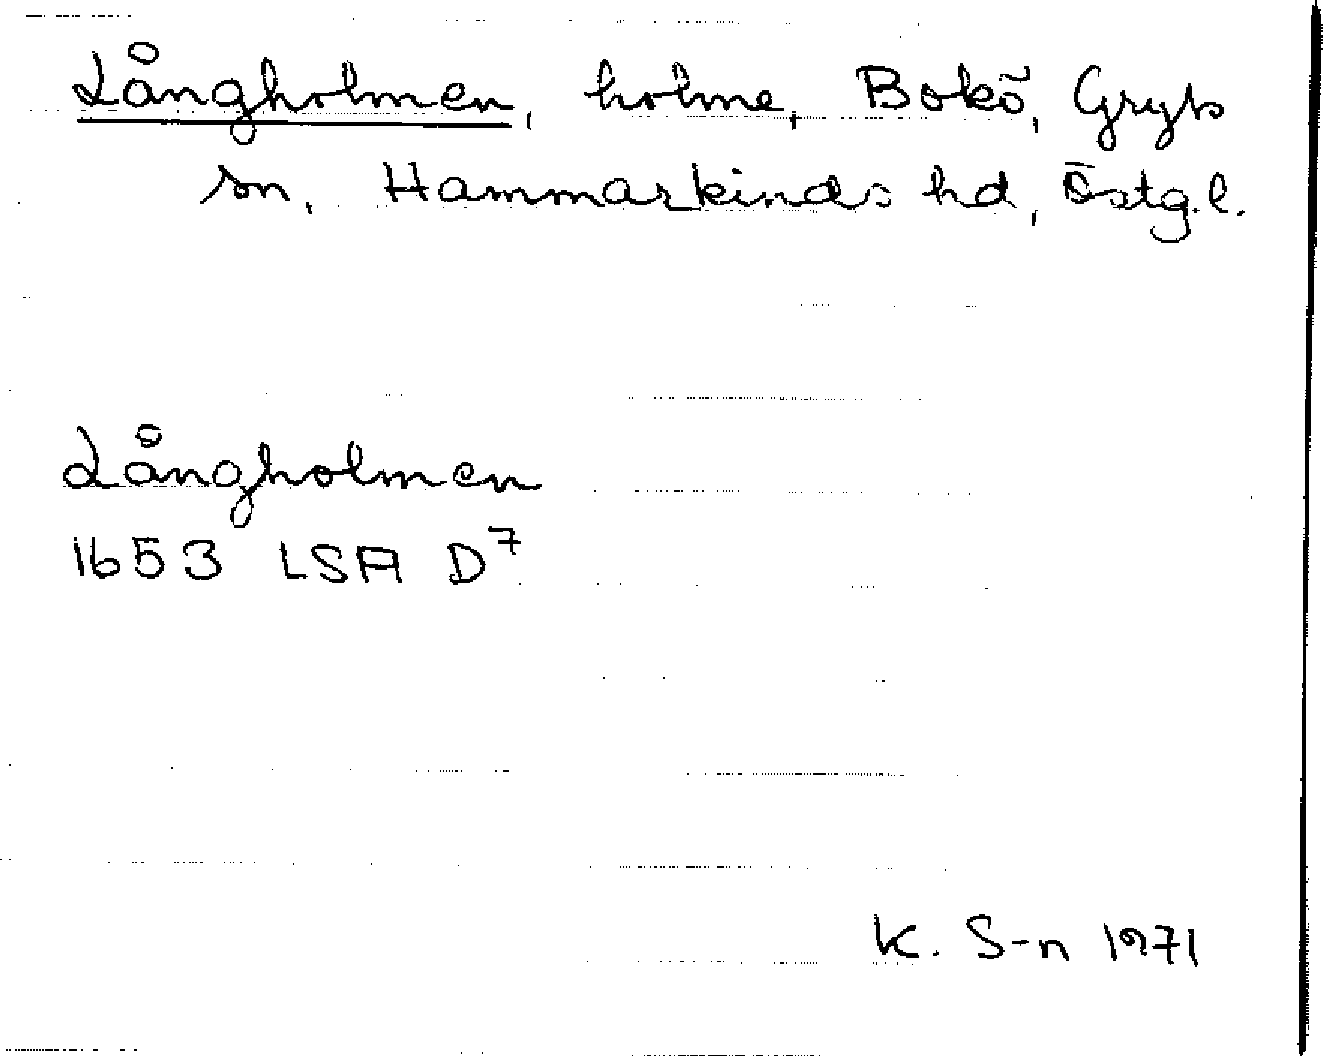 Långholmen, holme, Bokö, Gryts
sn, Hammarkinds hd, Östg.l.
Långholmen
1653 LSA D7
K. S-n 1971